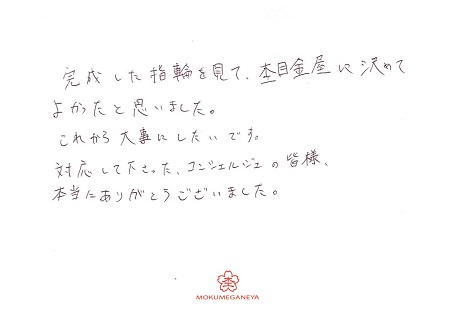 完成した指輪を見て、杢目金屋に決めて
よかったと思いました。
これから大事にしたいです。
対応して下さった、コンシェルジュの皆様、
本当にありがとうございました。
杢
MOKUMEGANEYA